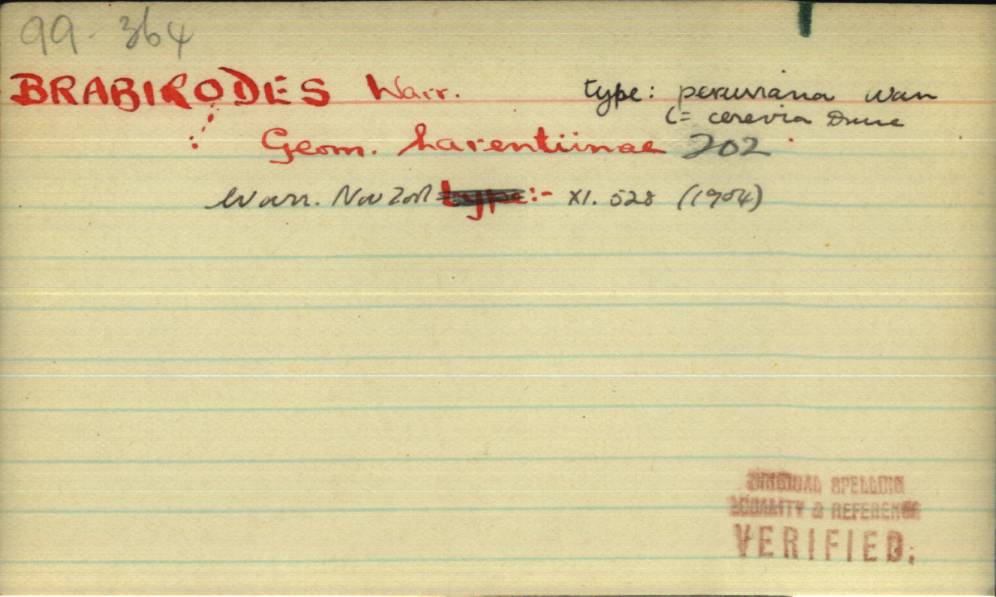 99-364
BRABIRODES Warr. type: peruviana Warr
(= cerevia Druce
Geom. Larentiinae 202
Warr. Nov Zool type:- XI. 528 (1904)
ORIGINAL SPELLING
LOCALITY & REFERENCE
VERIFIED.